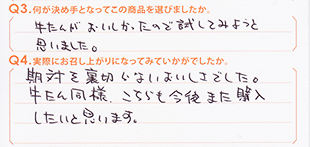 Q3.何が決め手となってこの商品を選びましたか。
牛たんがおいしかったので試してみようと
思いました。
Q4.実際にお召し上がりになってみていかがでしたか。
期待を裏切らないおいしさでした。
牛たん同様、こちらも今後また購入
したいと思います。